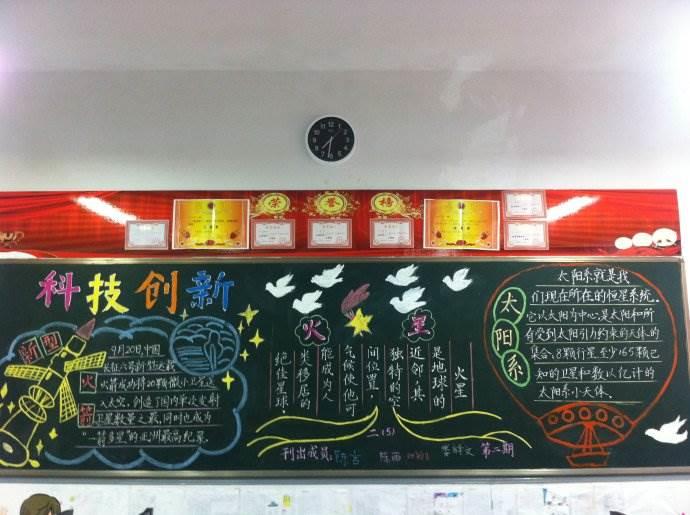 荣誉榜
科技创新
新型火箭
9月20日,中国
长征六号新型运载
火箭成功将20颗微小卫星送
入太空,创造了国内单次发射
卫星数量之最,同时也成为
“一箭多星”的亚洲最高纪录.
火星
火星
是地球的
近邻,其
独特的空
间位置,
气候使他可
能成为人
类移居的
绝佳星球.
二(5)
刊出成员:
第二期
太阳系
太阳系就是我
们现在所在的恒星系统.
它以太阳为中心,是太阳和所
有受到太阳引力约束的天体的
集合.8颗行星至少165颗已
知的卫星和数以亿计的
太阳系小天体.